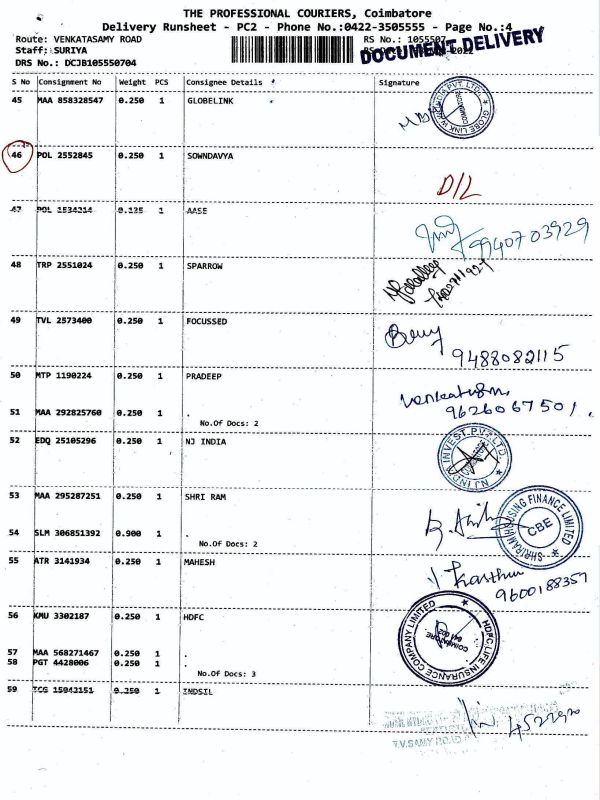 THE PROFESSIONAL COURIERS, Coimbatore
Delivery Runsheet - PC2 - Phone No.:0422-3505555 - Page No.:4
Route: VENKATASAMY ROAD RS No.: 1055507
Staff: SURIYA
DOCUMENT DELIVERY
DRS No.: DCJB105550704
S No Consignment No Weight PCS Consignee Details Signature
45 MAA 858328547 0.250 1 GLOBELINK
46 POL 2552845 0.250 1 SOWNDAVYA
D/L
47 POL 1534214 0.135 1 AASE
9940703929
48 TRP 2551024 0.250 1 SPARROW
49 TVL 2573400 0.250 1 FOCUSSED
9488082115
50 MTP 1190224 0.250 1 PRADEEP
51 MAA 292825760 0.250 1 .
9626067501.
No.Of Docs: 2
52 EDQ 25105296 0.250 1 NJ INDIA
NJ INDIA INVEST PVT. LTD.
53 MAA 295287251 0.250 1 SHRI RAM
SHRIRAM HOUSING FINANCE LIMITED
CBE
54 SLM 306851392 0.900 1 .
No.Of Docs: 2
55 ATR 3141934 0.250 1 MAHESH
9600188357
56 KMU 3302187 0.250 1 HDFC
HDFC LIFE INSURANCE COMPANY LIMITED
COIMBATORE
57 MAA 568271467 0.250 1 .
58 PGT 4428006 0.250 1 .
No.Of Docs: 3
59 0.250 1 INDSIL
T.V.SAMY ROAD